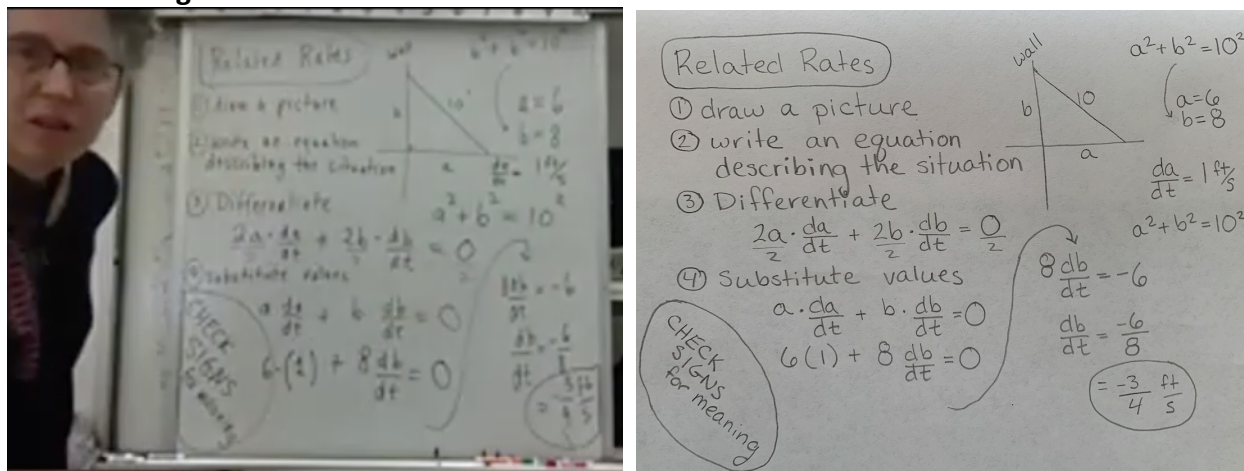 Related Rates
① draw a picture
② write an equation
describing the situation
③ Differentiate
2a/2 · da/dt + 2b/2 · db/dt = 0
④ Substitute values
a da/dt + b db/dt = 0
6·(1) + 8 db/dt = 0
CHECK
SIGNS
for meaning
wall
b
10
a
b² = 10²
a = 6
b = 8
da/dt = 1 ft/s
a² + b² = 10²
8 db/dt = -6
db/dt = -6/8
= -3/4 ft/s
Related Rates
① draw a picture
② write an equation
describing the situation
③ Differentiate
2a/2 · da/dt + 2b/2 · db/dt = 0/2
④ Substitute values
a · da/dt + b · db/dt = 0
6(1) + 8 db/dt = 0
CHECK
SIGNS
for meaning
wall
b
10
a
a² + b² = 10²
a = 6
b = 8
da/dt = 1 ft/s
a² + b² = 10²
8 db/dt = -6
db/dt = -6/8
= -3/4 ft/s